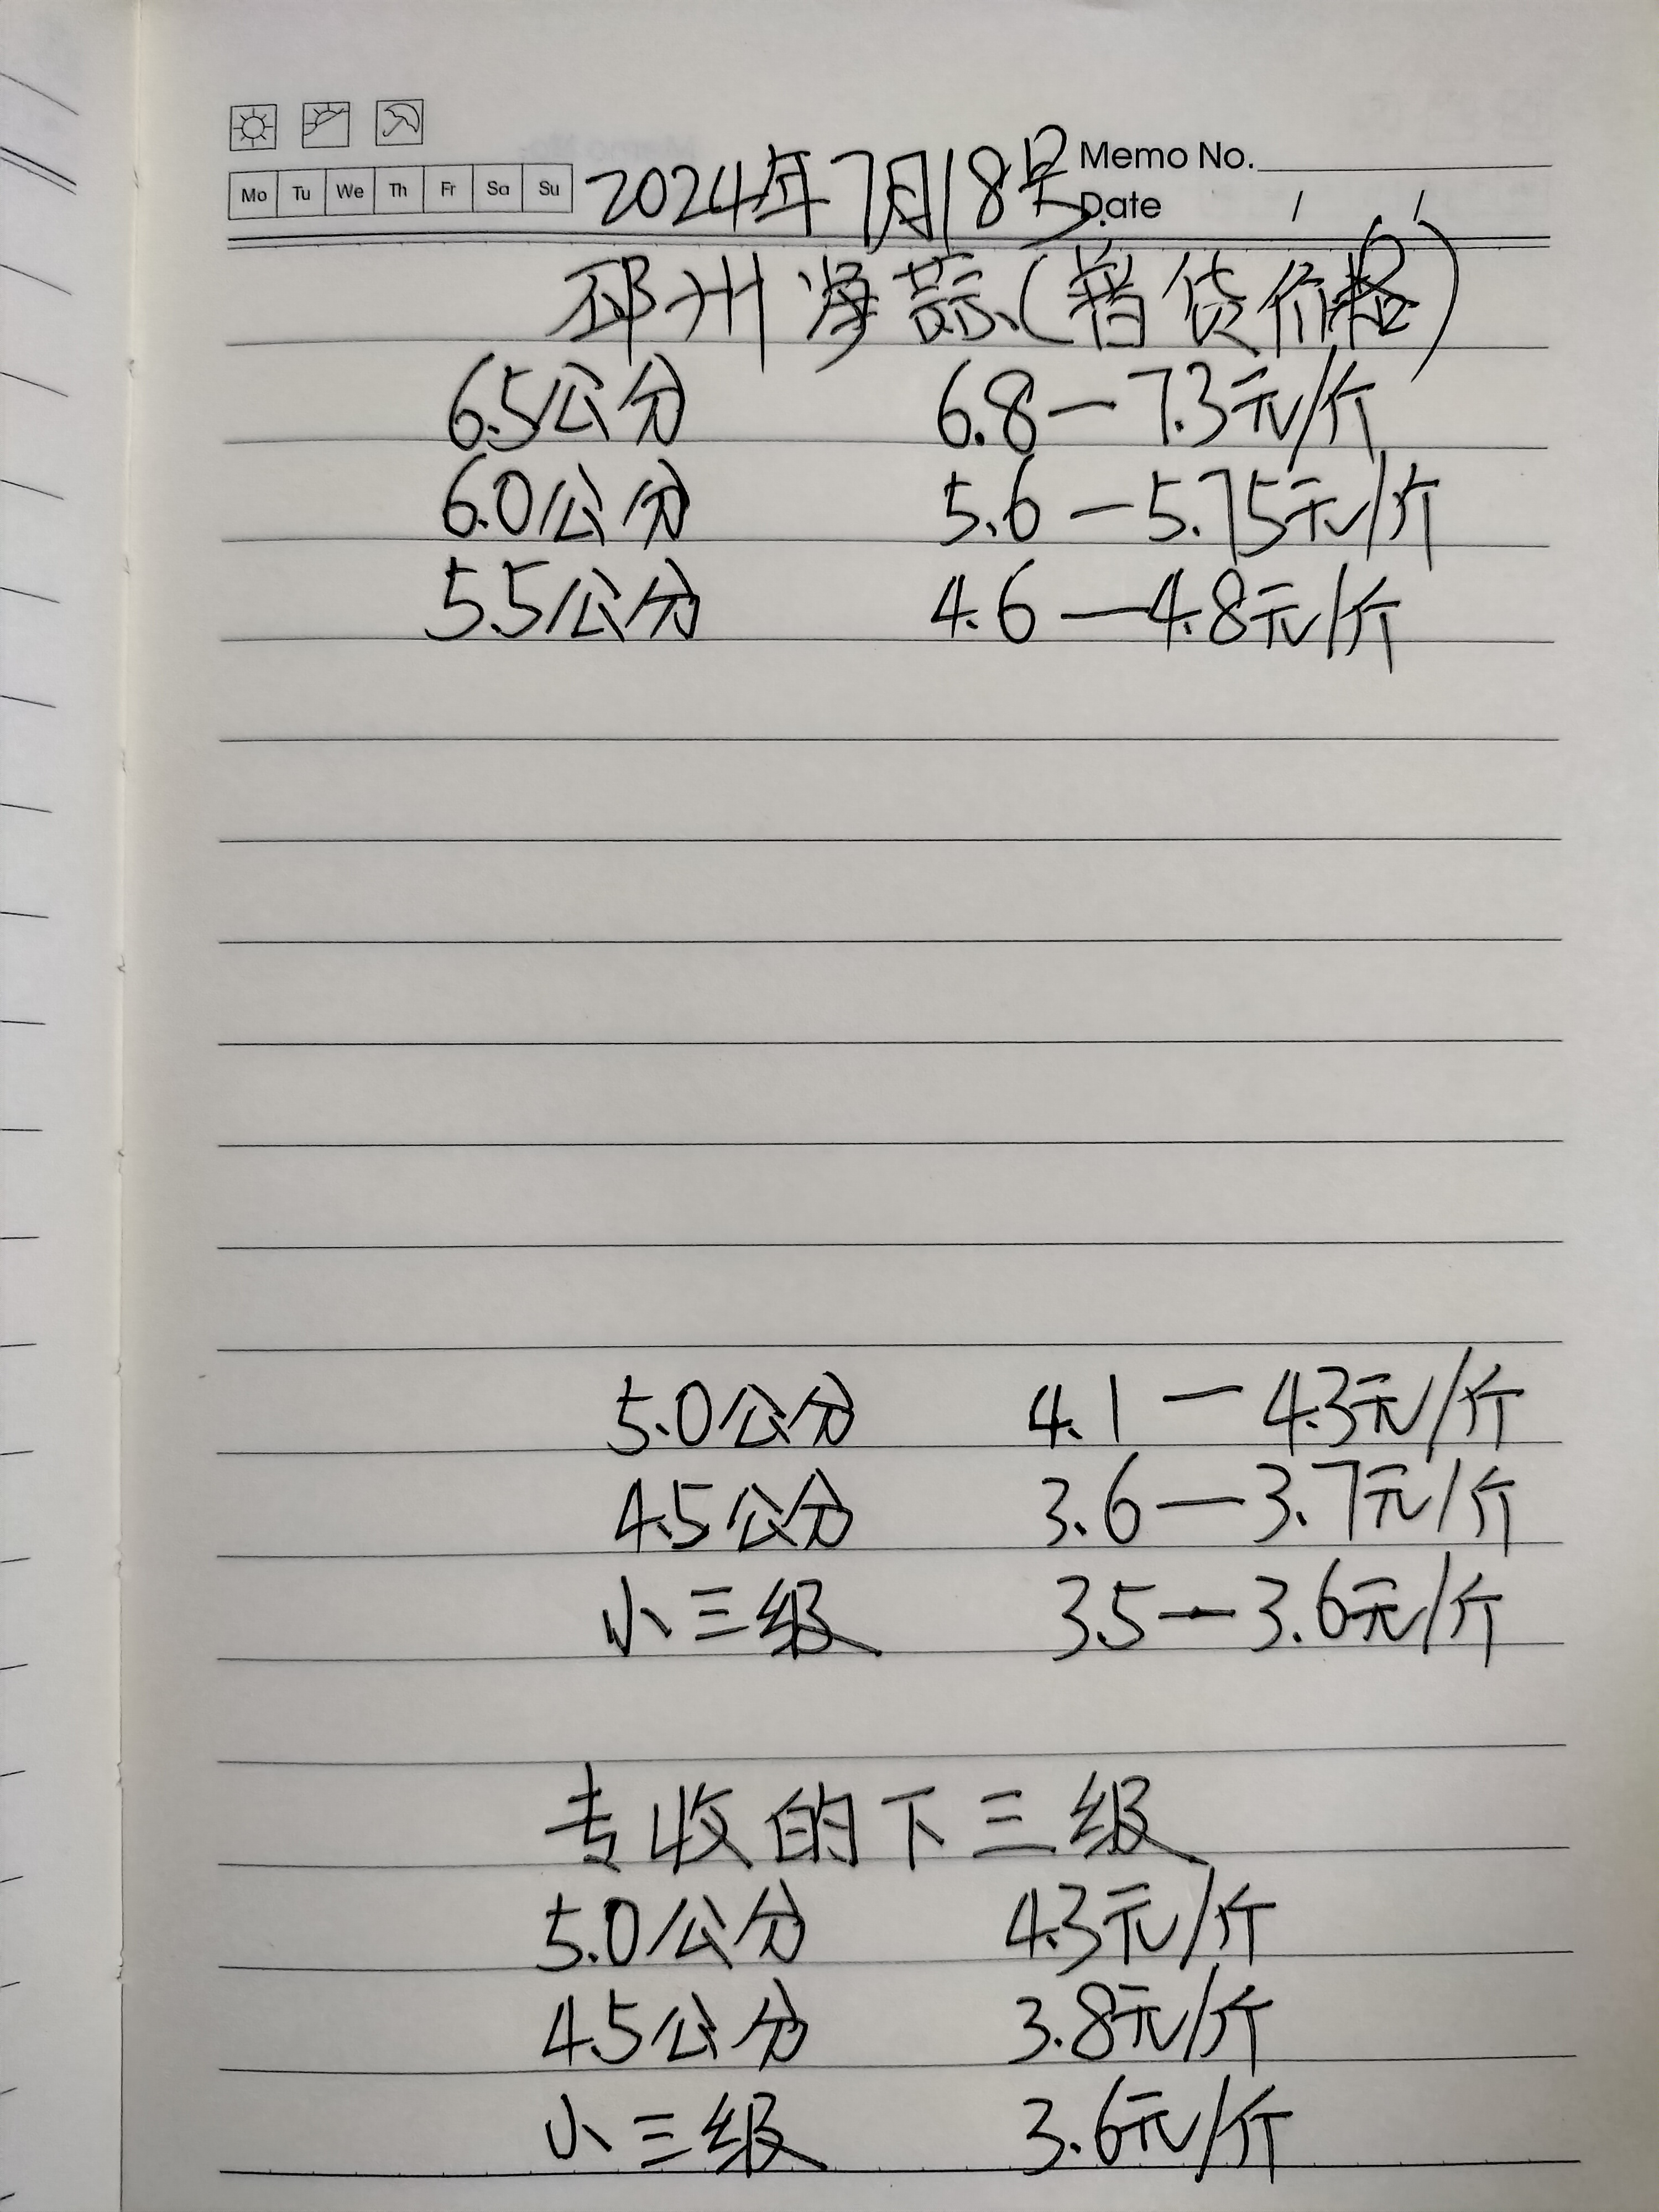 Mo Tu We Th Fr Sa Su
2024年7月18号
Memo No.
Date / /
邳州净蒜(普货价格)
6.5公分 6.8—7.3元/斤
6.0公分 5.6—5.75元/斤
5.5公分 4.6—4.8元/斤
5.0公分 4.1—4.3元/斤
4.5公分 3.6—3.7元/斤
小三级 3.5—3.6元/斤
专收的下三级
5.0公分 4.3元/斤
4.5公分 3.8元/斤
小三级 3.6元/斤